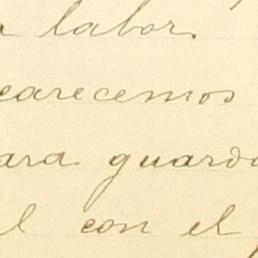 a labor.
carecemos
para guarda
l con el